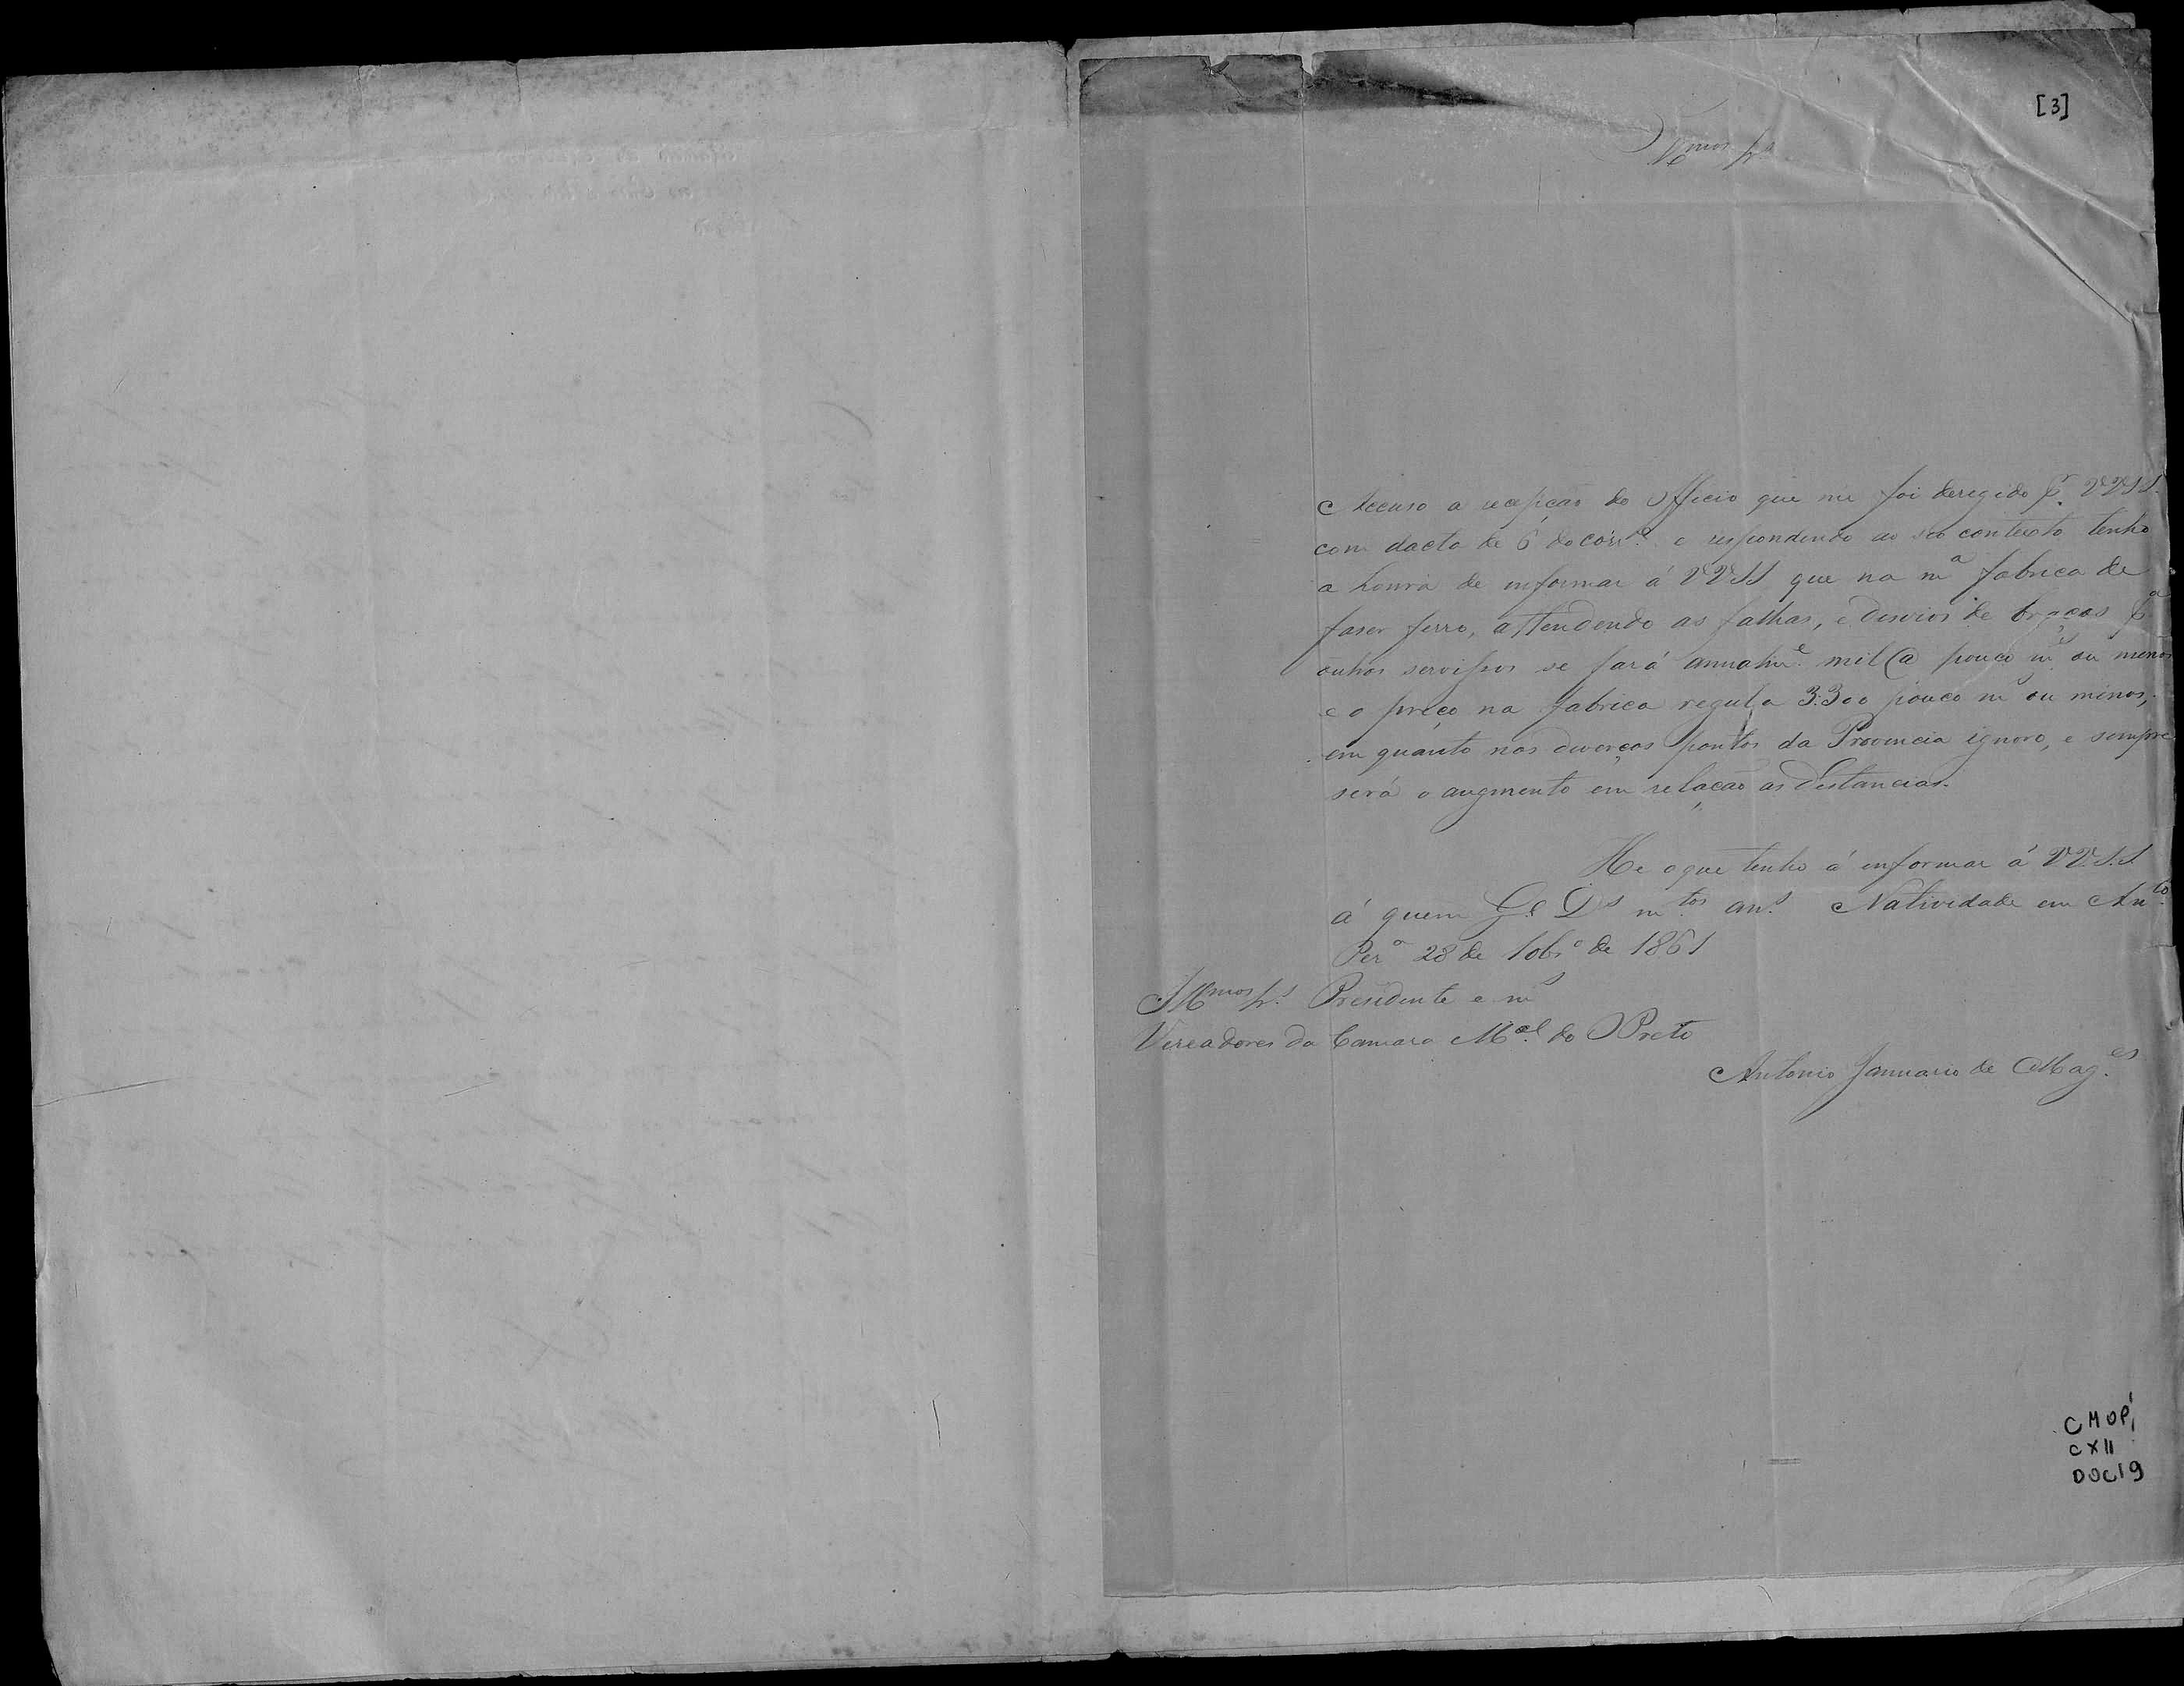 [3]
Illmos Srs
Accuso a recepção do Officio que me foi deregido pr. VVSS.
com dacta de 6 do corre. e respondendo ao seo contexto tenho
a honra de informar á VVSS que na ma fabrica de
faser ferro, attendendo as falhas, e desvios de braços pa
outros servissos se fará annalme. mil @ pouco ms. ou menos
e o preço na fabrica regula 3:300 pouco ms ou menos,
em quanto nos diverços pontos da Provincia ignoro, e sempre
será o augmento em relação as distancias.
He o que tenho á informar á VV.S.S.
á quem Ge. Ds mtos. ans. Natividade em Anto.
Pera 28 de 10bro de 1861
Illmos Srs. Presidente e ms
Vereadores da Camara Mcal. do OPreto
Antonio Januario de Mag.es
CMOP,
CX11
DOC19